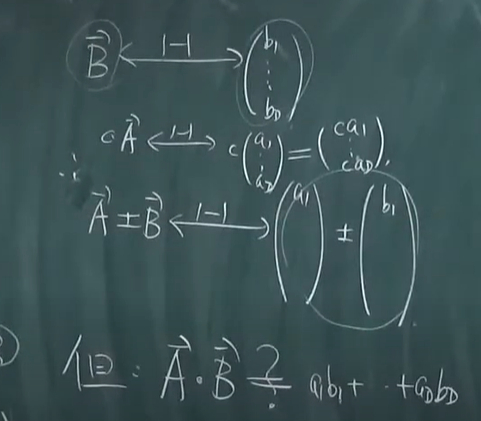 $\vec{B} \overset{1-1}{\longleftrightarrow} \begin{pmatrix} b_1 \\ \vdots \\ b_D \end{pmatrix}$
$c\vec{A} \overset{1-1}{\longleftrightarrow} c\begin{pmatrix} a_1 \\ \vdots \\ a_D \end{pmatrix} = \begin{pmatrix} ca_1 \\ \vdots \\ ca_D \end{pmatrix}.$
$\vec{A} \pm \vec{B} \overset{1-1}{\longleftrightarrow} \begin{pmatrix} a_1 \\ \\ \end{pmatrix} \pm \begin{pmatrix} b_1 \\ \\ \end{pmatrix}.$
但: $\vec{A} \cdot \vec{B} \overset{?}{=} a_1b_1 + \cdots + a_Db_D$